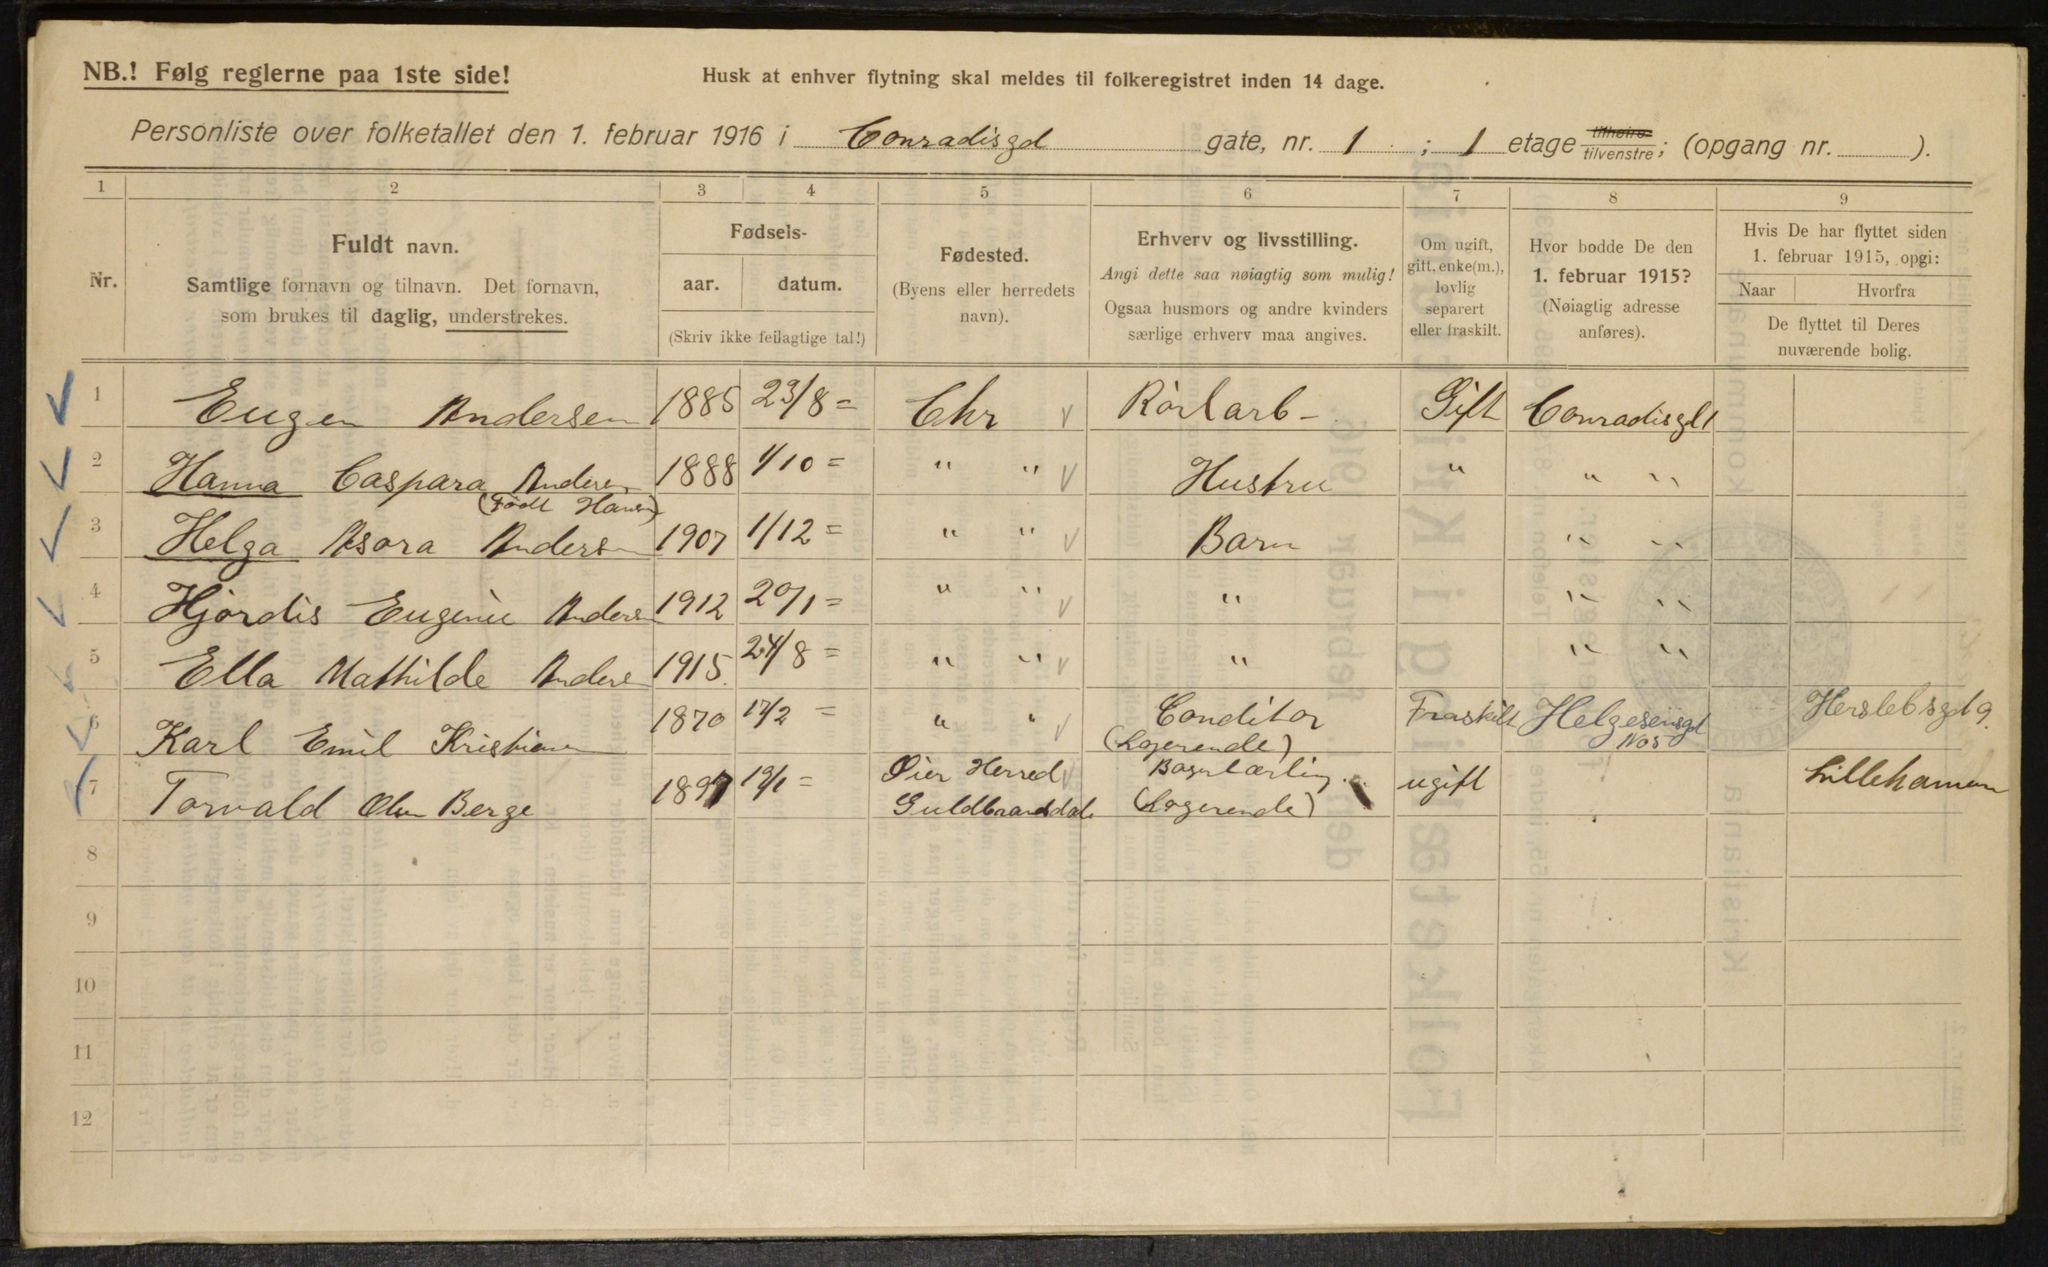 NB.! Følg reglerne paa 1ste side!
Husk at enhver flytning skal meldes til folkeregistret inden 14 dage.
Personliste over folketallet den 1. februar 1916 i Conradisgd gate, nr. 1 ; 1 etage tilhøire tilvenstre; (opgang nr. ).
1 2 3 4 5 6 7 8 9
Nr.
Fuldt navn.
Samtlige fornavn og tilnavn. Det fornavn,
som brukes til daglig, understrekes.
Fødsels-
aar. datum.
(Skriv ikke feilagtige tal!)
Fødested.
(Byens eller herredets
navn).
Erhverv og livsstilling.
Angi dette saa nøiagtig som mulig!
Ogsaa husmors og andre kvinders
særlige erhverv maa angives.
Om ugift,
gift, enke(m.),
lovlig
separert
eller fraskilt.
Hvor bodde De den
1. februar 1915?
(Nøiagtig adresse
anføres).
Hvis De har flyttet siden
1. februar 1915, opgi:
Naar Hvorfra
De flyttet til Deres
nuværende bolig.
1 Eugen Andersen 1885 23/8 = Chr Rørlarb - Gift Conradisgd 1
2 Hanna Caspara Andersen 1888 1/10 = " " Hustru " " "
(Født Hansen)
3 Helga Asora Andersen 1907 1/12 = " " Barn " "
4 Hjørdis Eugenie Anders 1912 20/1 = " " " " "
5 Ella Mathilde Anders 1915. 24/8 = " " " " "
6 Karl Emil Kristiansen 1870 17/2 = " " Conditor Fraskilt Helgesensgd Herslebsgd 9.
(Logerende) No 5
7 Torvald Olsen Berge 1897 19/1 = Øier Herred Bagerlærling ugift Lillehammer
Guldbrandsdal (Logerende)
8
9
10
11
12